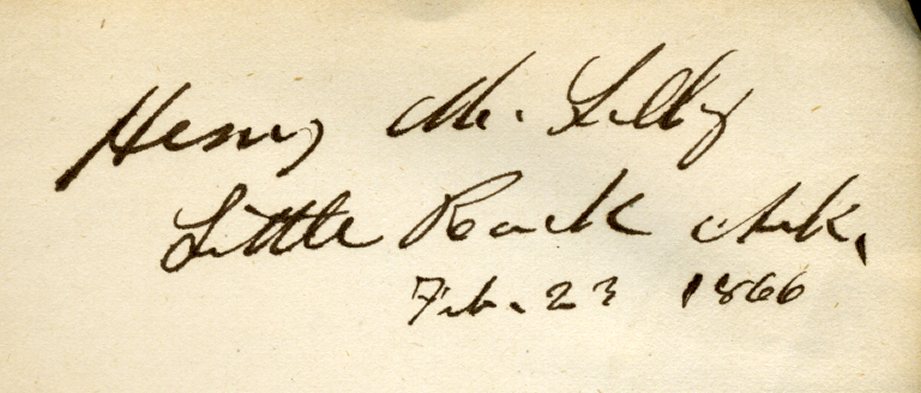 Henry M. Lilly
Little Rock Ark.
Feb. 23 1866